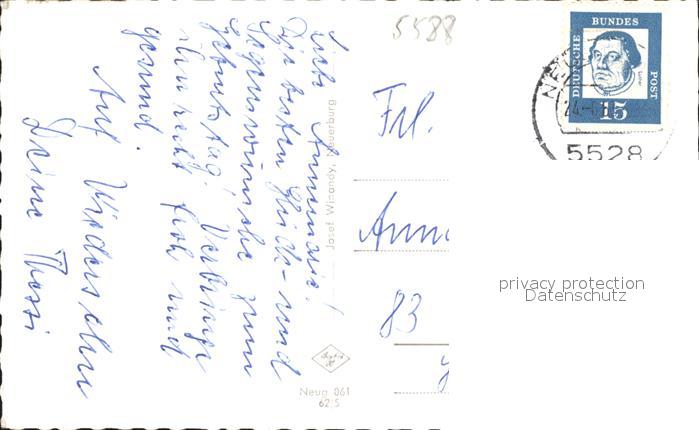 5588
Liebe Annemarie!
Die besten Glück- und
Segenswünsche zum
Geburtstag! Verbringe
ihn recht froh und
gesund.
Auf Wiedersehen
Deine Thessi
Josef Winandy, Neuerburg
Neug 061
62/5
DEUTSCHE BUNDES POST
15
5528
Frl.
83
privacy protection
Datenschutz